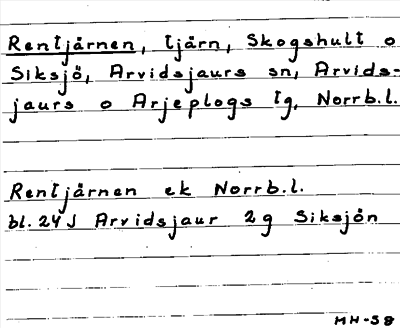 Rentjärnen, tjärn, Skogshult o
Siksjö, Arvidsjaurs sn, Arvids-
jaurs o Arjeplogs tg, Norrb.l.
Rentjärnen ek Norrb.l.
bl. 24 J Arvidsjaur 2g Siksjön
MH-58